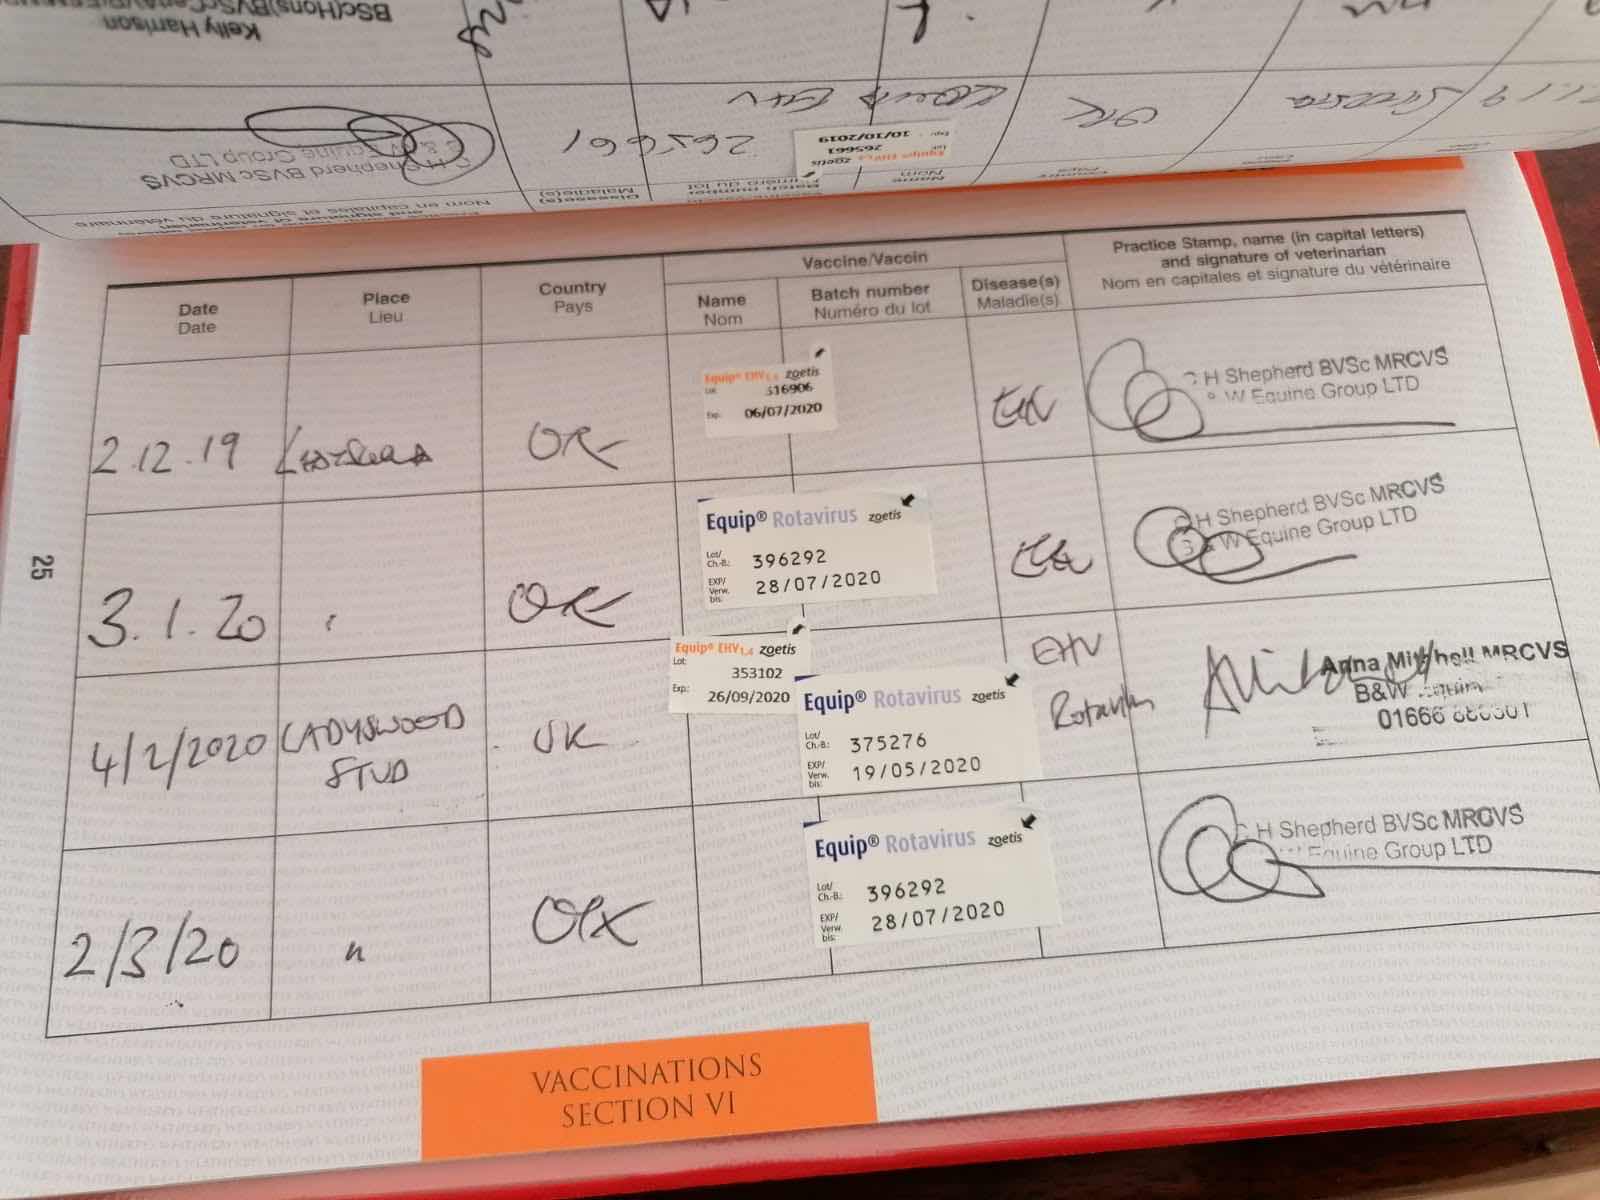 Kelly Harrison
265661
Equip EHV
Equip® EHV1,4 zoetis
Lot: 265661
Exp.: 10/10/2019
H Shepherd BVSc MRCVS
W Equine Group LTD
Name
Nom
Batch number
Numéro du lot
Disease(s)
Maladie(s)
and signature of veterinarian
Nom en capitales et signature du vétérinaire
Date
Date
Place
Lieu
Country
Pays
Vaccine/Vaccin
Name
Nom
Batch number
Numéro du lot
Disease(s)
Maladie(s)
Practice Stamp, name (in capital letters)
and signature of veterinarian
Nom en capitales et signature du vétérinaire
2.12.19
Equip® EHV1,4 zoetis
Lot: 316906
Exp.: 06/07/2020
EHV
H Shepherd BVSc MRCVS
W Equine Group LTD
3.1.20
Equip® Rotavirus zoetis
Lot/
Ch.-B.: 396292
EXP/
Verw.
bis: 28/07/2020
H Shepherd BVSc MRCVS
W Equine Group LTD
4/2/2020
LADYSWOOD
STUD
UK
Equip® EHV1,4 zoetis
Lot: 353102
Exp.: 26/09/2020
Equip® Rotavirus zoetis
Lot/
Ch.-B.: 375276
EXP/
Verw.
bis: 19/05/2020
EHV
Rotavirus
Anna Mitchell MRCVS
B&W Equine
01666
2/3/20
"
Equip® Rotavirus zoetis
Lot/
Ch.-B.: 396292
EXP/
Verw.
bis: 28/07/2020
H Shepherd BVSc MRCVS
W Equine Group LTD
25
VACCINATIONS
SECTION VI